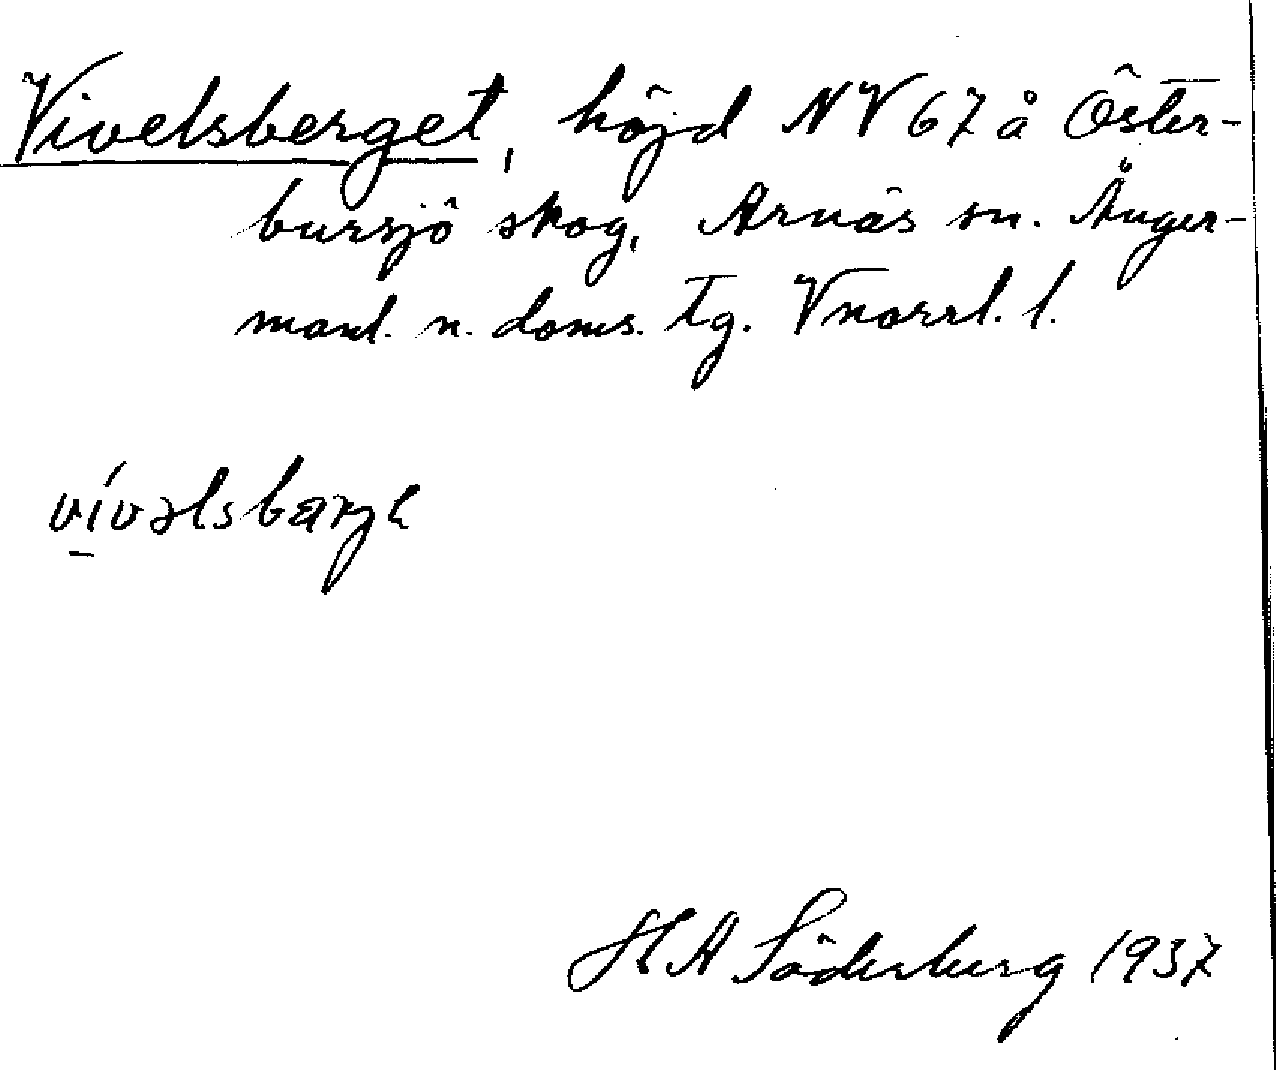 Vivelsberget, höjd NV 67 å Öster-
bursjö skog, Arnäs sn. Ånger-
manl. n. doms. tg. Vnorrl. l.
vívəlsbærjɛ
H A Söderberg 1937